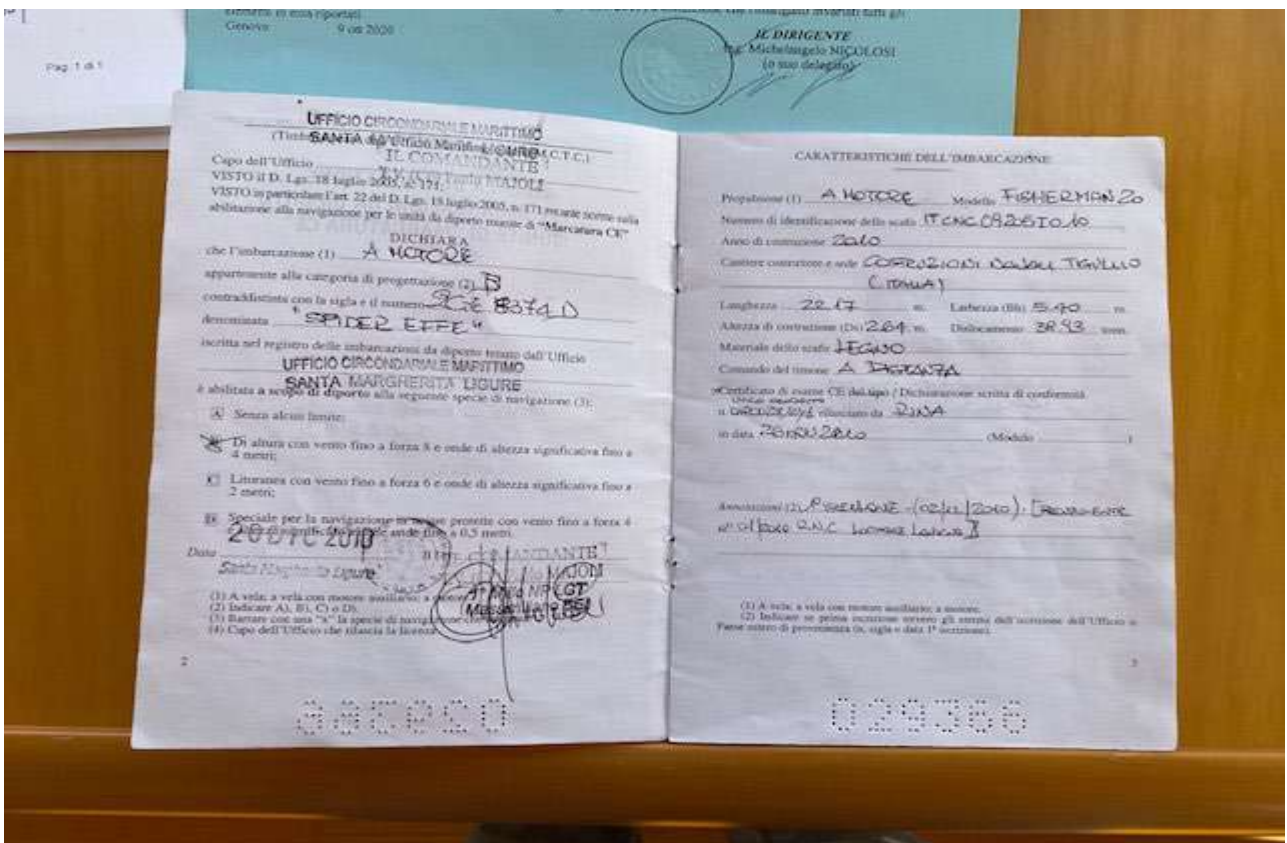 Pag. 1 di 1
Genova 9 ott 2020
IL DIRIGENTE
Ing. Michelangelo NICOLOSI
(o suo delegato)
UFFICIO CIRCONDARIALE MARITTIMO
SANTA LIGURE
IL COMANDANTE
Capo dell'Ufficio MAJOLI
VISTO il D. Lgs. 18 luglio 2005, n. 171;
VISTO in particolare l'art. 22 del D. Lgs. 18 luglio 2005, n. 171 recante norme sulla
abilitazione alla navigazione per le unità da diporto munite di "Marcatura CE"
DICHIARA
che l'imbarcazione (1) A MOTORE
appartenente alla categoria di progettazione (2) B
contraddistinta con la sigla e il numero 8374 D
denominata "SPIDER EFFE"
iscritta nel registro delle imbarcazioni da diporto tenuto dall'Ufficio
UFFICIO CIRCONDARIALE MARITTIMO
SANTA MARGHERITA LIGURE
è abilitata a scopo di diporto alla seguente specie di navigazione (3):
A Senza alcun limite;
Di altura con vento fino a forza 8 e onde di altezza significativa fino a
4 metri;
C Litoranea con vento fino a forza 6 e onde di altezza significativa fino a
2 metri;
D Speciale per la navigazione in acque protette con vento fino a forza 4
e onde fino a 0,5 metri.
Data 2010
Santa Margherita Ligure
(1) A vela; a vela con motore ausiliario; a motore.
(2) Indicare A), B), C) o D).
(3) Barrare con una "x" la specie di navigazione
(4) Capo dell'Ufficio che rilascia la licenza.
2
CARATTERISTICHE DELL'IMBARCAZIONE
Propulsione (1) A MOTORE Modello FISHERMAN 20
Numero di identificazione dello scafo IT CNC
Anno di costruzione 2010
Cantiere costruzione e sede COSTRUZIONI NAVALI TIGULLIO
(ITALIA)
Lunghezza 22.17 m. Larghezza (Bh) 5.40 m.
Altezza di costruzione (Dc) 2.64 m. Dislocamento 38.93 tonn.
Materiale dello scafo LEGNO
Comando del timone A DISTANZA
Certificato di esame CE del tipo / Dichiarazione scritta di conformità
n. rilasciato da RINA
in data (Modulo )
Annotazioni (2) (02/12/2010)
(1) A vela; a vela con motore ausiliario; a motore.
(2) Indicare se prima iscrizione ovvero gli estremi dell'iscrizione dell'Ufficio o
Paese estero di provenienza (n. sigla e data 1ª iscrizione).
3
029366